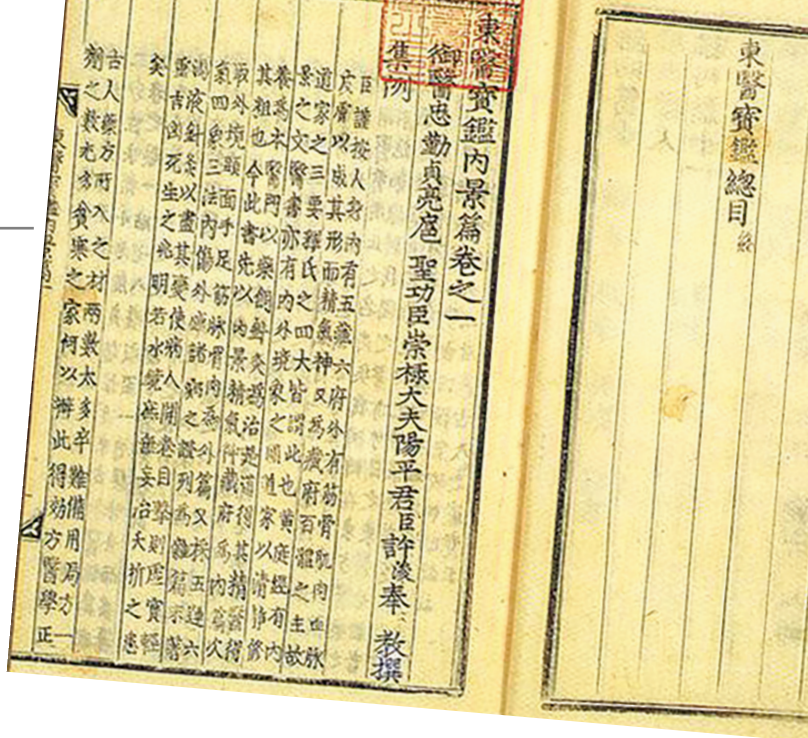 東醫寶鑑總目 終
東醫寶鑑內景篇卷之一
御醫忠勤貞亮扈 聖功臣崇祿大夫陽平君臣許浚奉 教撰
集例
臣謹按人身內有五藏六府外有筋骨肌肉血脉
皮膚以成其形而精氣神又爲藏府百體之主故
道家之三要釋氏之四大皆謂此也黃庭經有內
景之文醫書亦有內外境象之圖道家以清靜修
養爲本醫門以藥餌鍼灸爲治是道得其精醫得
其粗也今此書先以內景精氣神藏府爲內篇次
取外境頭面手足筋脉骨肉爲外篇又採五運六
氣四象三法內傷外感諸病之證列爲雜篇末著
湯液針灸以盡其變使病人開卷目擊則虛實輕
重吉凶死生之兆明若水鏡庶無妄治夭折之患
矣
古人藥方所入之材兩數太多卒難備用局方一
劑之數尤多貧寒之家何以辦此得効方醫學正